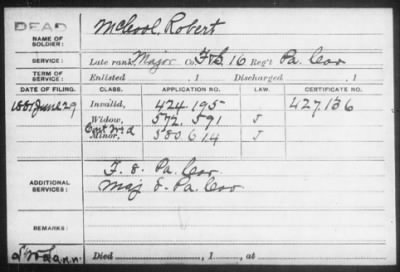 DEAD
McCool, Robert
NAME OF SOLDIER:
SERVICE: Late rank, Major Co. F&S, 16 Reg't Pa. Cav
TERM OF SERVICE: Enlisted , 1 Discharged , 1
DATE OF FILING. CLASS. APPLICATION NO. LAW. CERTIFICATE NO.
1881 June 29 Invalid, 424.195 427.136
Widow, 572.591 J
Cont Wid
Minor, 580614 J
F. 8. Pa. Cav.
ADDITIONAL SERVICES: Maj 8. Pa. Cav.
REMARKS:
Died , 1 , at